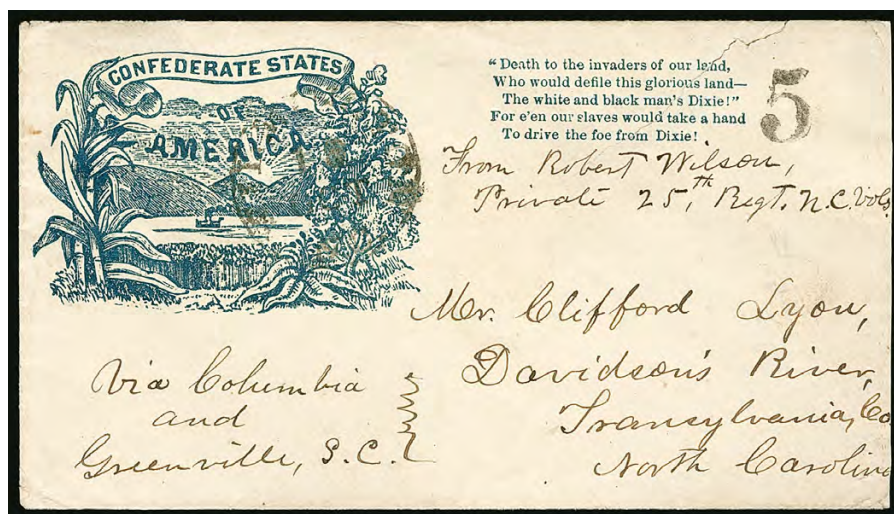 CONFEDERATE STATES
OF
AMERICA
"Death to the invaders of our land,
Who would defile this glorious land—
The white and black man's Dixie!"
For e'en our slaves would take a hand
To drive the foe from Dixie!
5
From Robert Wilson,
Private 25,th Regt. N.C. Vols
Mr. Clifford Lyon,
Davidson's River,
Transylvania, Co
North Carolina
Via Columbia
and
Greenville, S.C.